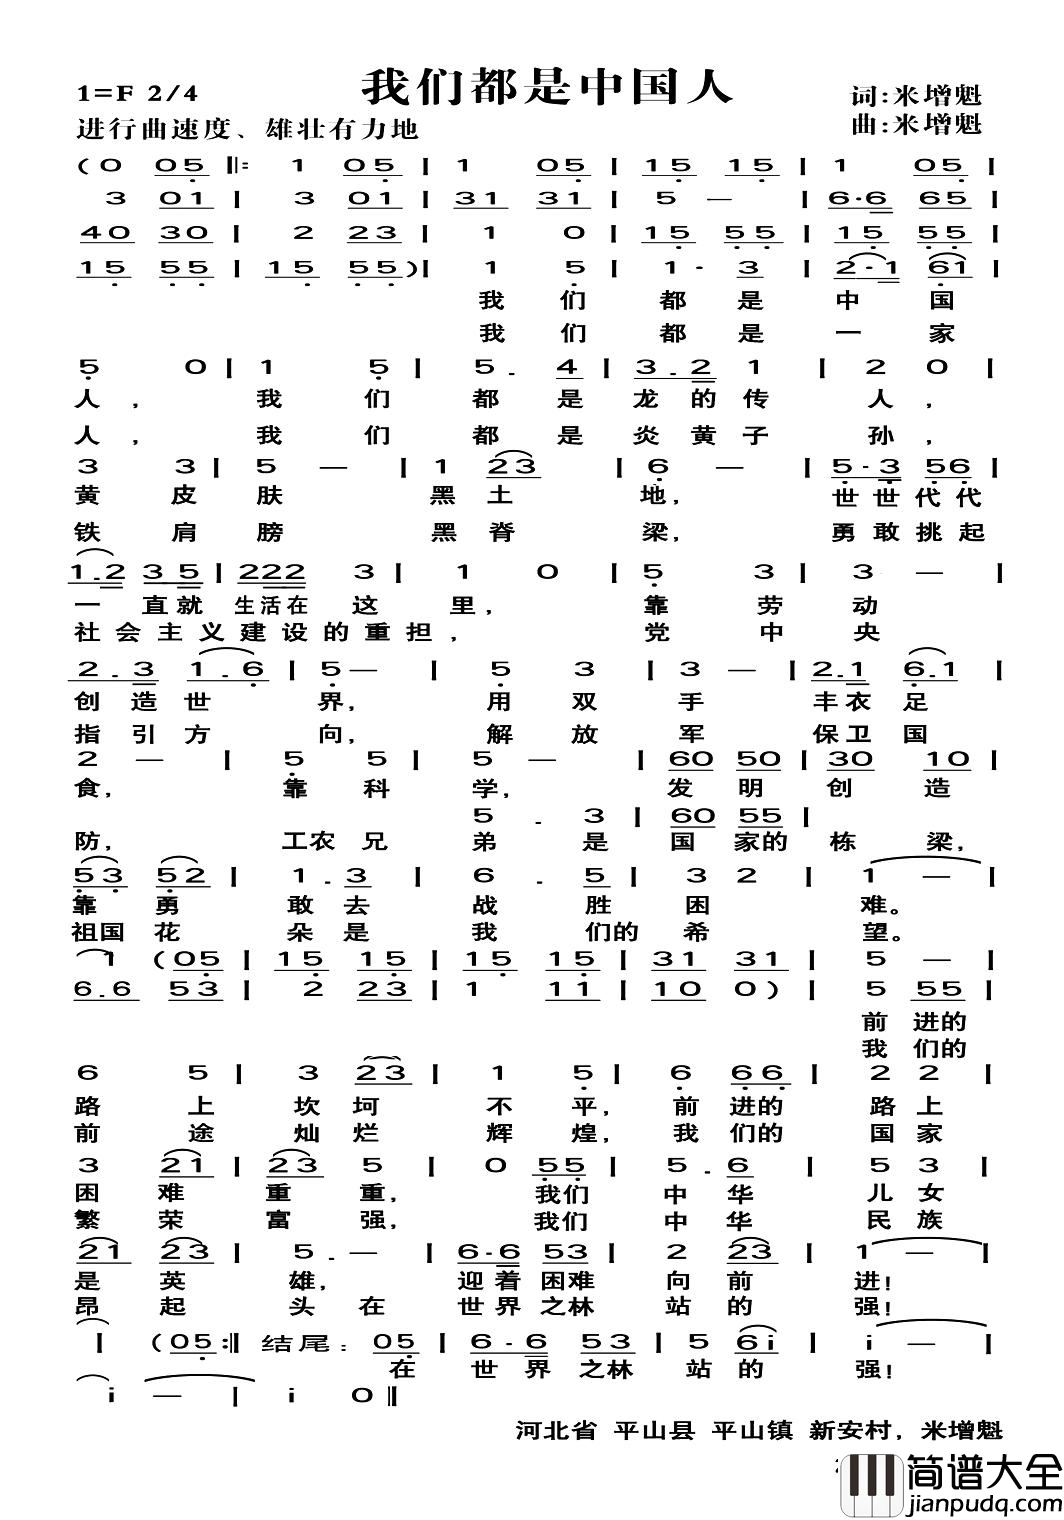 我们都是中国人
1=F 2/4
词:米增魁
进行曲速度、雄壮有力地
曲:米增魁
(0 05 ‖: 1 05 | 1 05 | 15 15 | 1 05 |
3 01 | 3 01 | 31 31 | 5 — | 6·6 65 |
40 30 | 2 23 | 1 0 | 15 55 | 15 55 |
15 55 | 15 55)| 1 5 | 1· 3 | 2·1 61 |
我 们 都 是 中 国
我 们 都 是 一 家
5 0 | 1 5 | 5. 4 | 3.2 1 | 2 0 |
人, 我 们 都 是 龙 的 传 人,
人, 我 们 都 是 炎 黄 子 孙,
3 3 | 5 — | 1 23 | 6 — | 5·3 56 |
黄 皮 肤 黑 土 地, 世 世 代 代
铁 肩 膀 黑 脊 梁, 勇 敢 挑 起
1.2 3 5 | 222 3 | 1 0 | 5 3 | 3 — |
一 直 就 生 活 在 这 里, 靠 劳 动
社 会 主 义 建 设 的 重 担, 党 中 央
2.3 1.6 | 5 — | 5 3 | 3 — | 2.1 6.1 |
创 造 世 界, 用 双 手 丰 衣 足
指 引 方 向, 解 放 军 保 卫 国
2 — | 5 5 | 5 — | 60 50 | 30 10 |
食, 靠 科 学, 发 明 创 造
5 . 3 | 60 55 |
防, 工农 兄 弟 是 国 家的 栋 梁,
53 52 | 1.3 | 6.5 | 3 2 | 1 — |
靠 勇 敢 去 战 胜 困 难。
祖国 花 朵 是 我 们的 希 望。
1 (05 | 15 15 | 15 15 | 31 31 | 5 — |
6.6 53 | 2 23 | 1 11 | 10 0) | 5 55 |
前 进的
我 们的
6 5 | 3 23 | 1 5 | 6 66 | 2 2 |
路 上 坎 坷 不 平, 前 进的 路 上
前 途 灿 烂 辉 煌, 我 们的 国 家
3 21 | 23 5 | 0 55 | 5.6 | 5 3 |
困 难 重 重, 我们 中 华 儿 女
繁 荣 富 强, 我们 中 华 民 族
21 23 | 5.— | 6·6 53 | 2 23 | 1 — |
是 英 雄, 迎 着 困 难 向 前 进!
昂 起 头 在 世 界 之 林 站 的 强!
| (05 :‖ 结尾: 05 | 6·6 53 | 5 6i | i — |
在 世 界 之林 站 的 强!
i — | i 0 ‖
河北省 平山县 平山镇 新安村, 米增魁
简谱大全
jianpudq.com